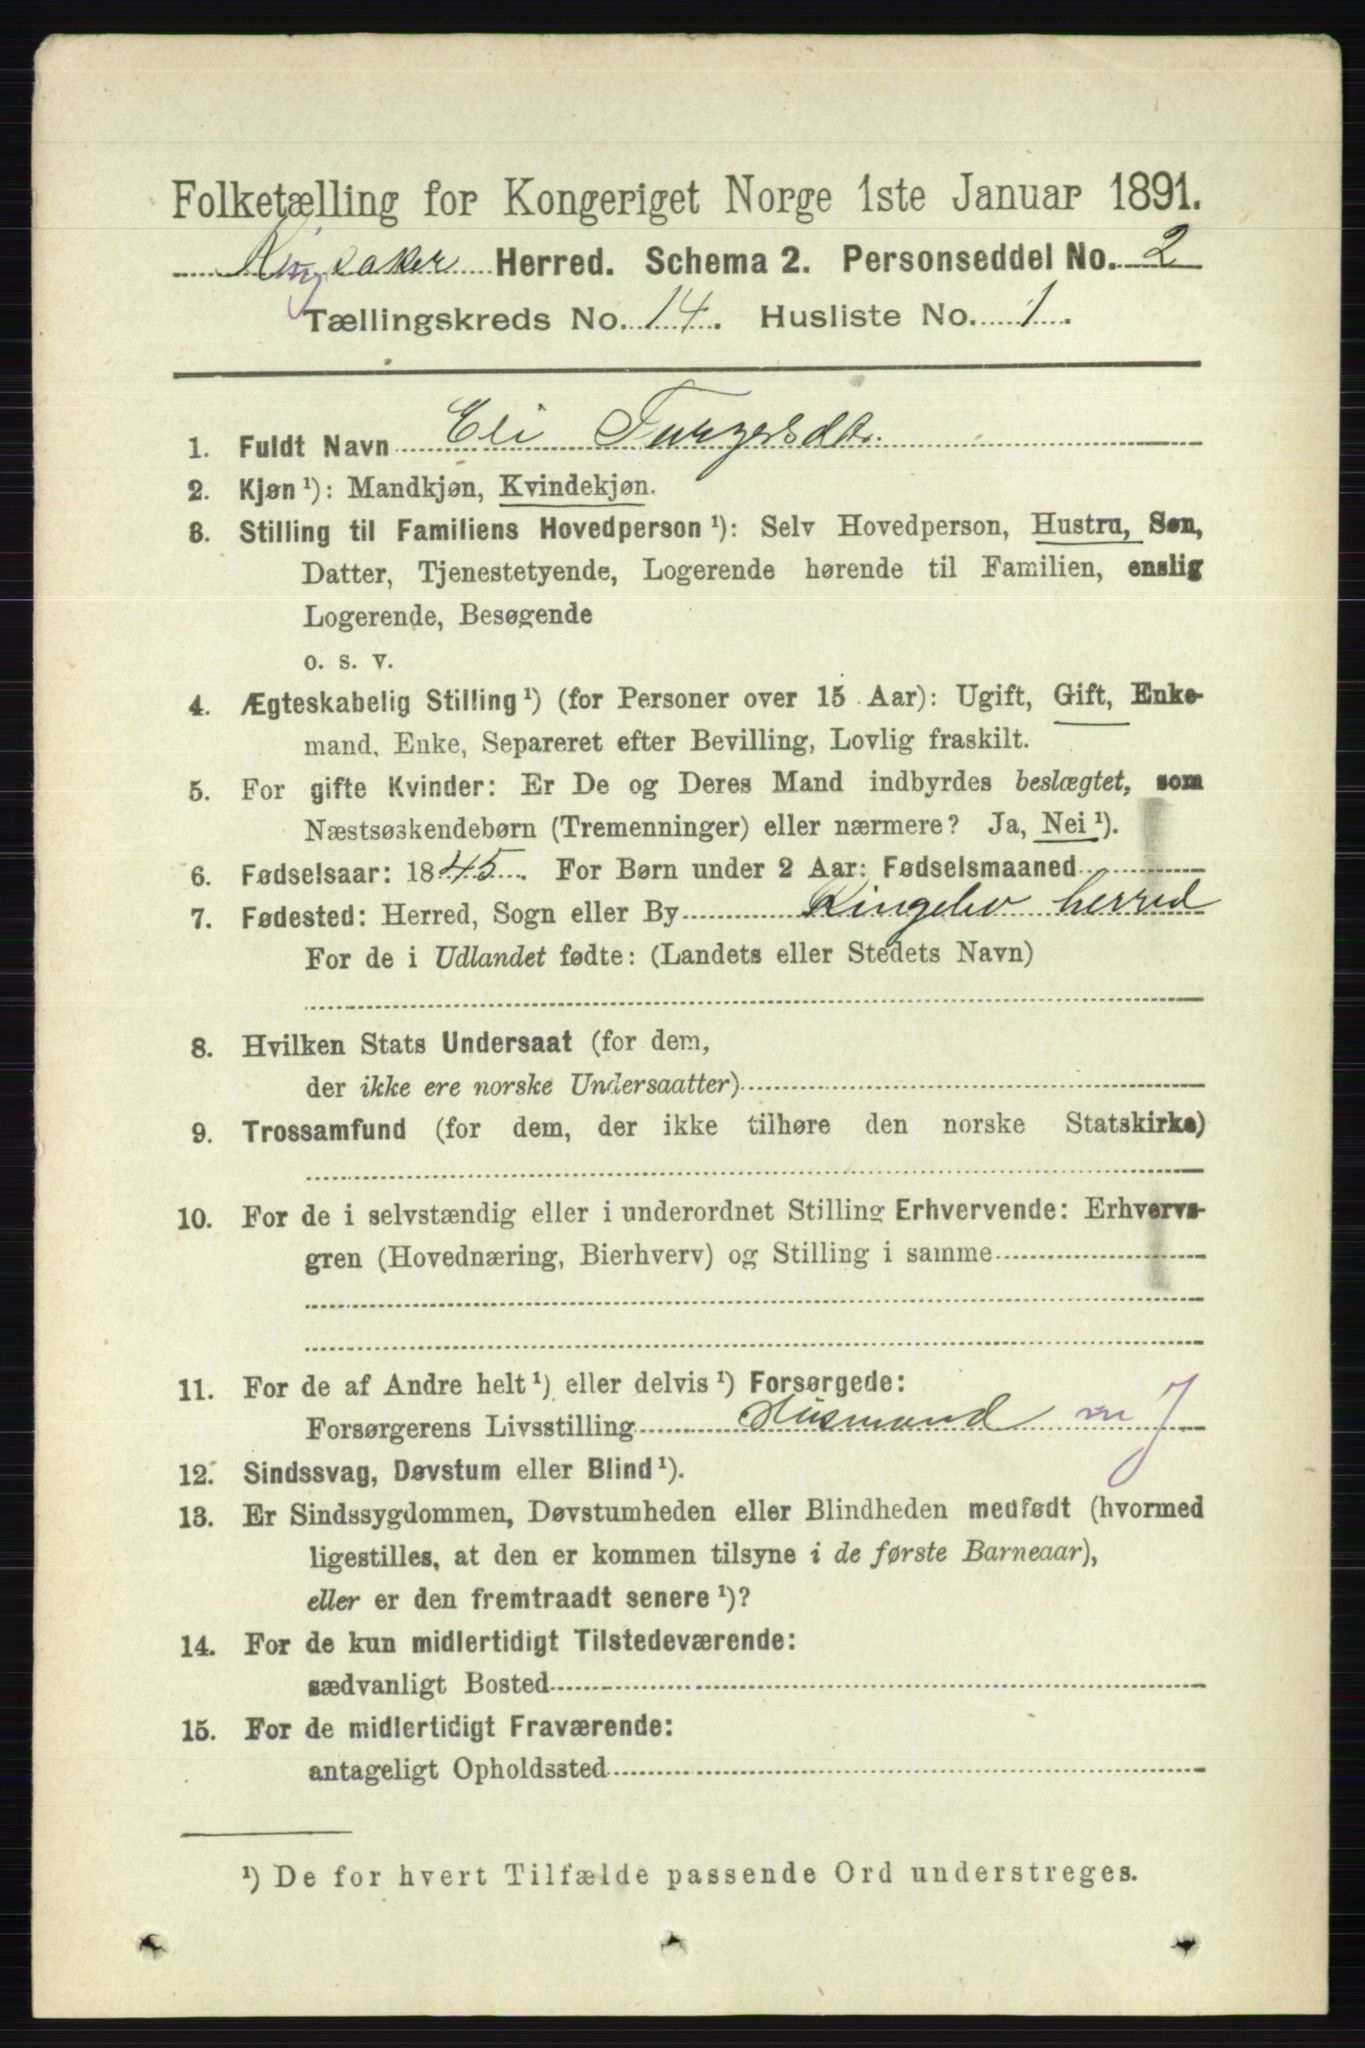 Folketælling for Kongeriget Norge 1ste Januar 1891.
Ringsaker Herred. Schema 2. Personseddel No. 2
Tællingskreds No. 14. Husliste No. 1.
1. Fuldt Navn Eli
2. Kjøn ¹): Mandkjøn, Kvindekjøn.
3. Stilling til Familiens Hovedperson ¹): Selv Hovedperson, Hustru, Søn,
Datter, Tjenestetyende, Logerende hørende til Familien, enslig
Logerende, Besøgende
o. s. v.
4. Ægteskabelig Stilling ¹) (for Personer over 15 Aar): Ugift, Gift, Enke-
mand, Enke, Separeret efter Bevilling, Lovlig fraskilt.
5. For gifte Kvinder: Er De og Deres Mand indbyrdes beslægtet, som
Næstsøskendebørn (Tremenninger) eller nærmere? Ja, Nei ¹).
6. Fødselsaar: 1845. For Børn under 2 Aar: Fødselsmaaned
7. Fødested: Herred, Sogn eller By Ringebo herred
For de i Udlandet fødte: (Landets eller Stedets Navn)
8. Hvilken Stats Undersaat (for dem,
der ikke ere norske Undersaatter)
9. Trossamfund (for dem, der ikke tilhøre den norske Statskirke)
10. For de i selvstændig eller i underordnet Stilling Erhvervende: Erhvervs-
gren (Hovednæring, Bierhverv) og Stilling i samme
11. For de af Andre helt ¹) eller delvis ¹) Forsørgede:
Forsørgerens Livsstilling Husmand m J
12. Sindssvag, Døvstum eller Blind ¹).
13. Er Sindssygdommen, Døvstumheden eller Blindheden medfødt (hvormed
ligestilles, at den er kommen tilsyne i de første Barneaar),
eller er den fremtraadt senere ¹)?
14. For de kun midlertidigt Tilstedeværende:
sædvanligt Bosted
15. For de midlertidigt Fraværende:
antageligt Opholdssted
¹) De for hvert Tilfælde passende Ord understreges.